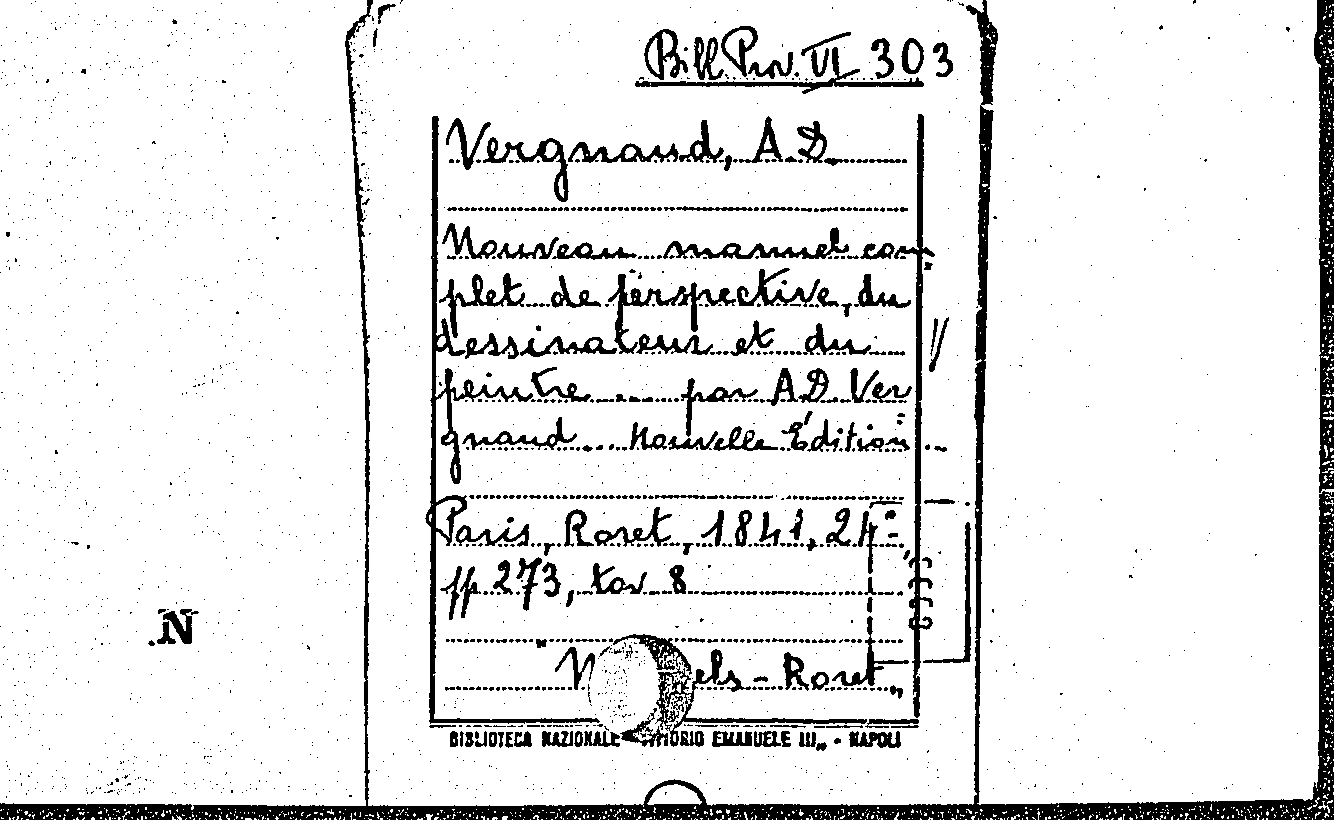 Bibl Prov. VI 303
Vergnaud, A.D.
Nouveau manuel com
plet de perspective, du
dessinateur et du
peintre .... par A.D. Ver
gnaud ... Nouvelle Édition ...
Paris, Roret, 1841, 24°,
pp 273, tav 8
els - Roret„
BIBLIOTECA NAZIONALE EMANUELE III„ - NAPOLI
N